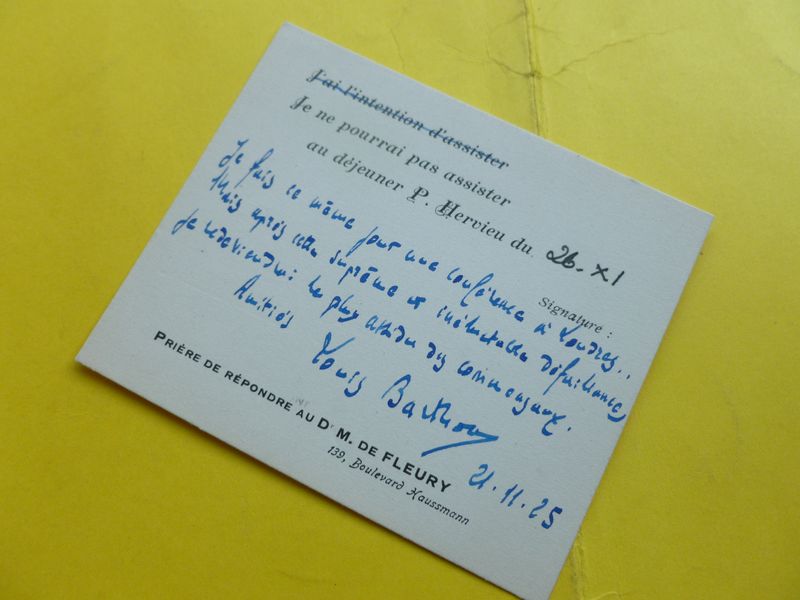 J'ai l'intention d'assister
Je ne pourrai pas assister
au déjeuner P. Hervieu du 26. XI
Signature :
Je fais ce même jour une conférence à Londres..
Mais après cette suprême et inéluctable défaillance,
je redeviendrai le plus assidu des commensaux.
Amitiés
Louis Barthou
21.11.25
PRIÈRE DE RÉPONDRE AU Dr M. DE FLEURY
139, Boulevard Haussmann